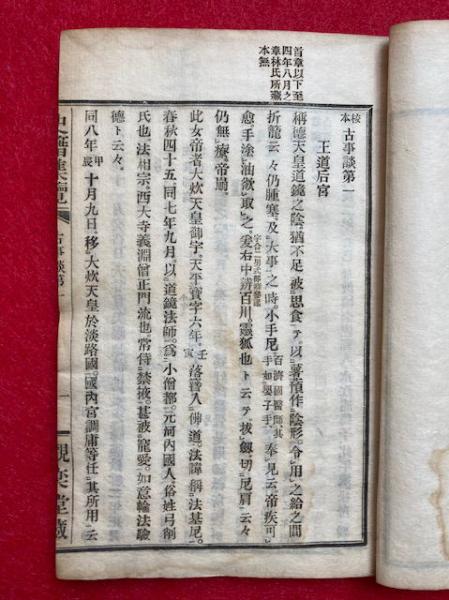 首章以下至
四年八月之
章林氏所藏
本無
校本古事談第一
王道后宮
稱德天皇道鏡之陰猶不足被思食テ。以薯蕷作陰形。令用之給之間
折龍云々仍腫塞。及大事之時。小手尼百濟國醫師其手如嬰子手。奉見云帝疾可
愈。手塗油。欲取之。爰右中辨百川。靈狐也ト云テ拔劔切尼肩云々
仍無療。帝崩。
此女帝者大炊天皇御宇。天平寶字六年。壬寅落餝入佛道。法諱稱法基尼。
春秋四十五。同七年九月以道鏡法師。爲小僧都。元河內國人。俗姓弓削
氏也。法相宗。西大寺義淵僧正門流也。常侍禁掖。甚被寵愛。如意輪法驗
德ト云々。
同八年甲辰十月九日。移大炊天皇於淡路國。國內宮調庸等任其所用云
古事談第一
一
觀奕堂藏